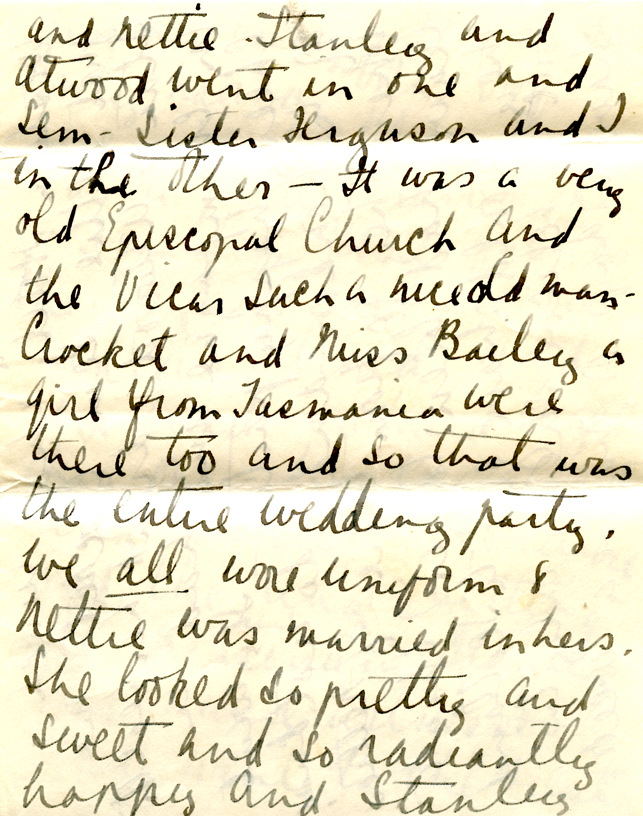 and Nettie. Stanley and
Atwood went in one and
Lem - Sister Ferguson and I
in the other - It was a very
old Episcopal Church and
the Vicar such a nice old man -
Crocket and Miss Bailey a
girl from Tasmania were
there too and so that was
the entire wedding party.
We all wore uniform &
Nettie was married in hers.
She looked so pretty and
sweet and so radiantly
happy and Stanley